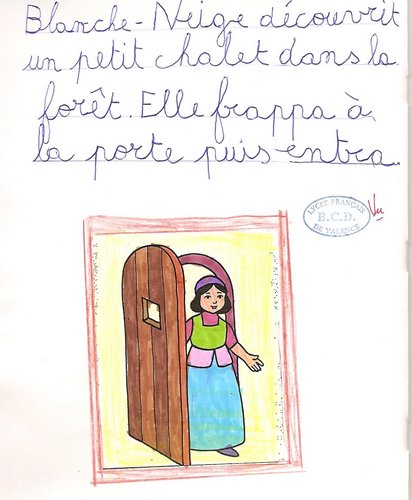 Blanche-Neige découvrit
un petit chalet dans la
forêt. Elle frappa à
la porte puis entra.
LYCÉE FRANÇAIS
B.C.D.
DE VALENCE
Vu